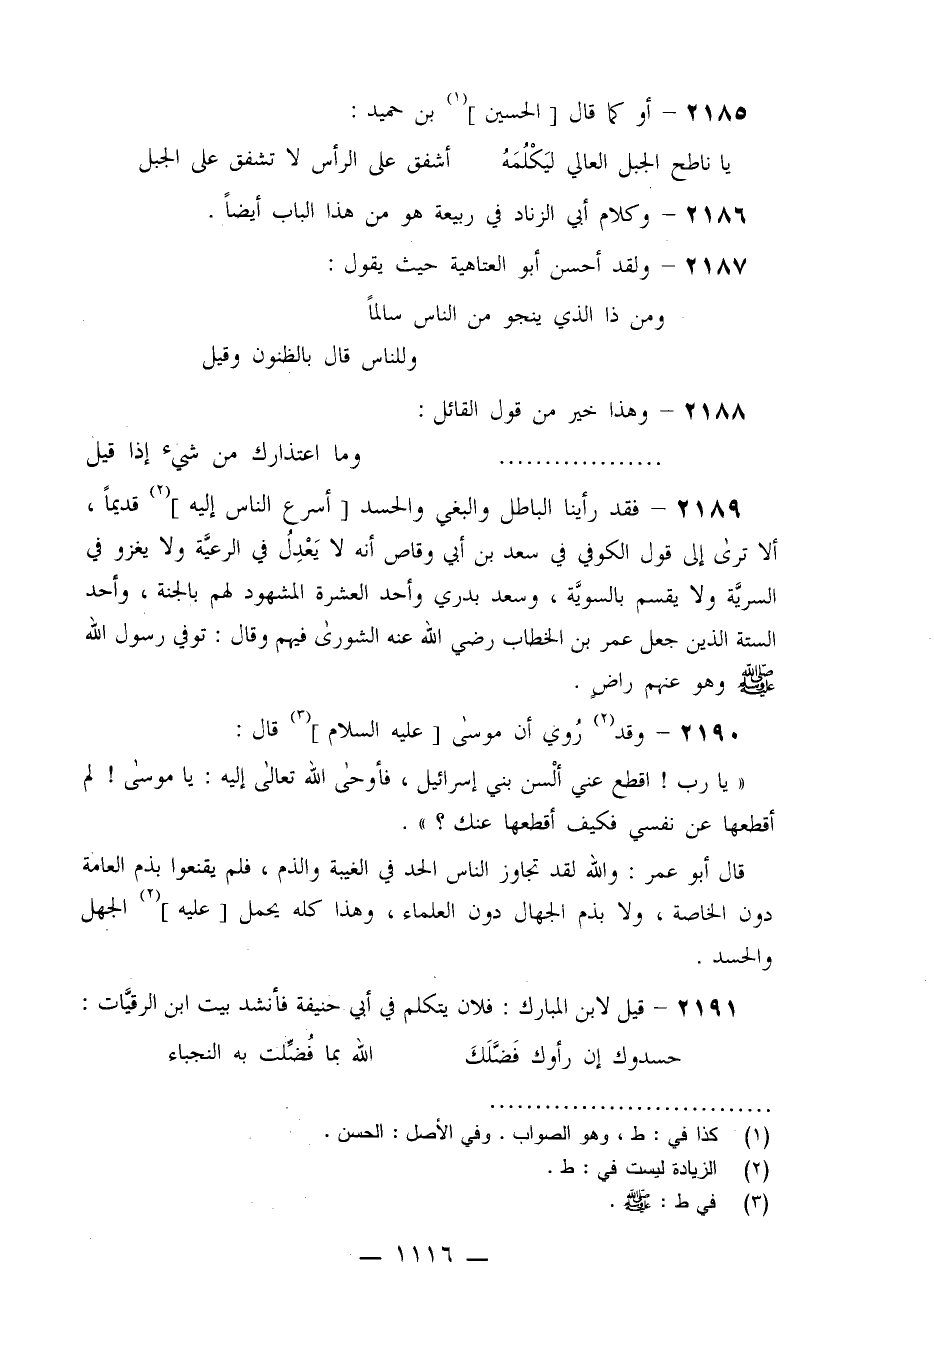 ٢١٨٥ - أو كما قال [ الحسين ](١) بن حميد :
يا ناطح الجبل العالي ليَكْلُمَهُ أشفق على الرأس لا تشفق على الجبل
٢١٨٦ - وكلام أبي الزناد في ربيعة هو من هذا الباب أيضاً .
٢١٨٧ - ولقد أحسن أبو العتاهية حيث يقول :
ومن ذا الذي ينجو من الناس سالماً
وللناس قال بالظنون وقيل
٢١٨٨ - وهذا خير من قول القائل :
.................. وما اعتذارك من شيء إذا قيل
٢١٨٩ - فقد رأينا الباطل والبغي والحسد [ أسرع الناس إليه ](٢) قديماً ،
ألا ترىٰ إلى قول الكوفي في سعد بن أبي وقاص أنه لا يَعْدِلُ في الرعيَّة ولا يغزو في
السريَّة ولا يقسم بالسويَّة ، وسعد بدري وأحد العشرة المشهود لهم بالجنة ، وأحد
الستة الذين جعل عمر بن الخطاب رضي الله عنه الشورىٰ فيهم وقال : توفي رسول الله
ﷺ وهو عنهم راضٍ .
٢١٩٠ - وقد(٢) رُوي أن موسىٰ [ عليه السلام ](٣) قال :
« يا رب ! اقطع عني ألْسن بني إسرائيل ، فأوحىٰ الله تعالىٰ إليه : يا موسىٰ ! لم
أقطعها عن نفسي فكيف أقطعها عنك ؟ » .
قال أبو عمر : والله لقد تجاوز الناس الحد في الغيبة والذم ، فلم يقنعوا بذم العامة
دون الخاصة ، ولا بذم الجهال دون العلماء ، وهذا كله يحمل [ عليه ](٢) الجهل
والحسد .
٢١٩١ - قيل لابن المبارك : فلان يتكلم في أبي حنيفة فأنشد بيت ابن الرقيَّات :
حسدوك إن رأوك فَضَّلَكَ الله بما فُضِّلت به النجباء
...............................
(١) كذا في : ط ، وهو الصواب . وفي الأصل : الحسن .
(٢) الزيادة ليست في : ط .
(٣) في ط : ﷺ .
— ١١١٦ —